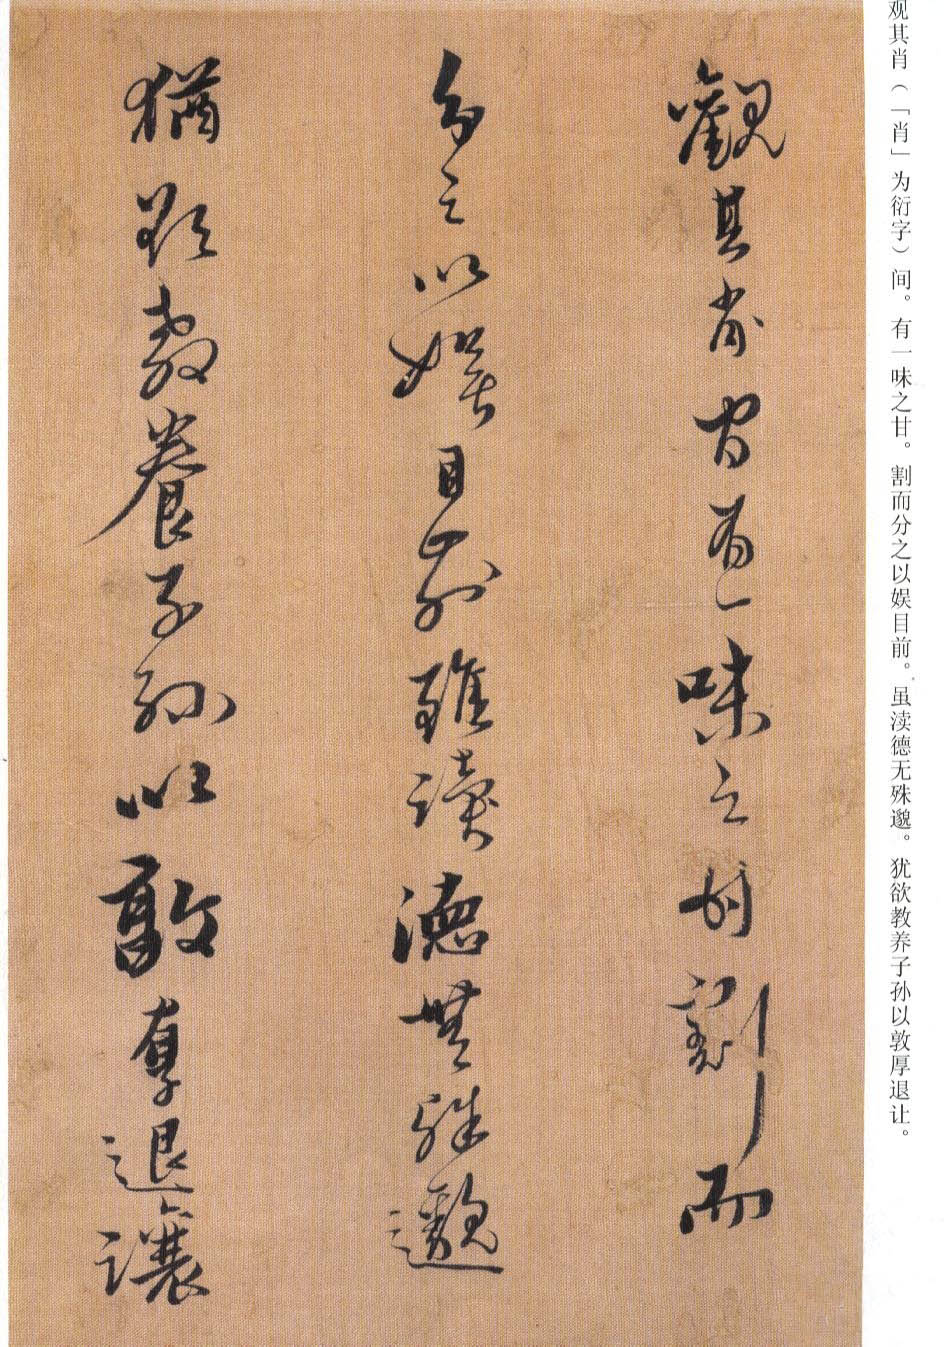 觀其肖間有一味之甘割而
分之以娛目前雖讀德無殊邈
猶欲教養子孫以敦厚退讓
观其肖（「肖」为衍字）间。有一味之甘。割而分之以娱目前。虽渎德无殊邈。犹欲教养子孙以敦厚退让。